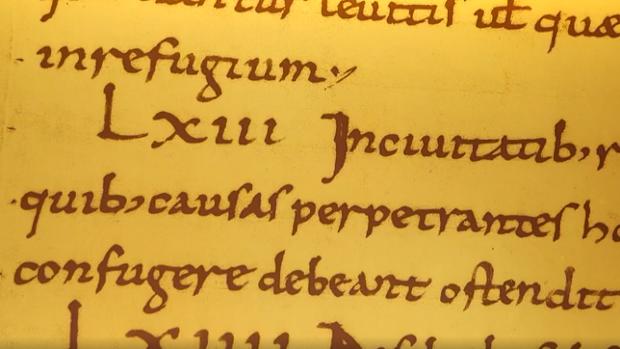 leuitis ut quae
in refugium
LXIII In ciuitatib; r
quib; causas perpetrantes ho
confugere debeant ostendit
LXIIII